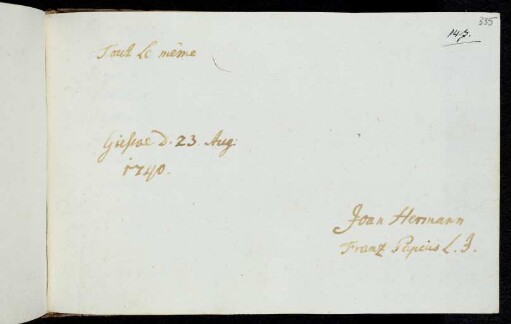 335
147.
Tout le même
Giessae d. 23 Aug:
1740.
Joan Hermann
Franz L. J.